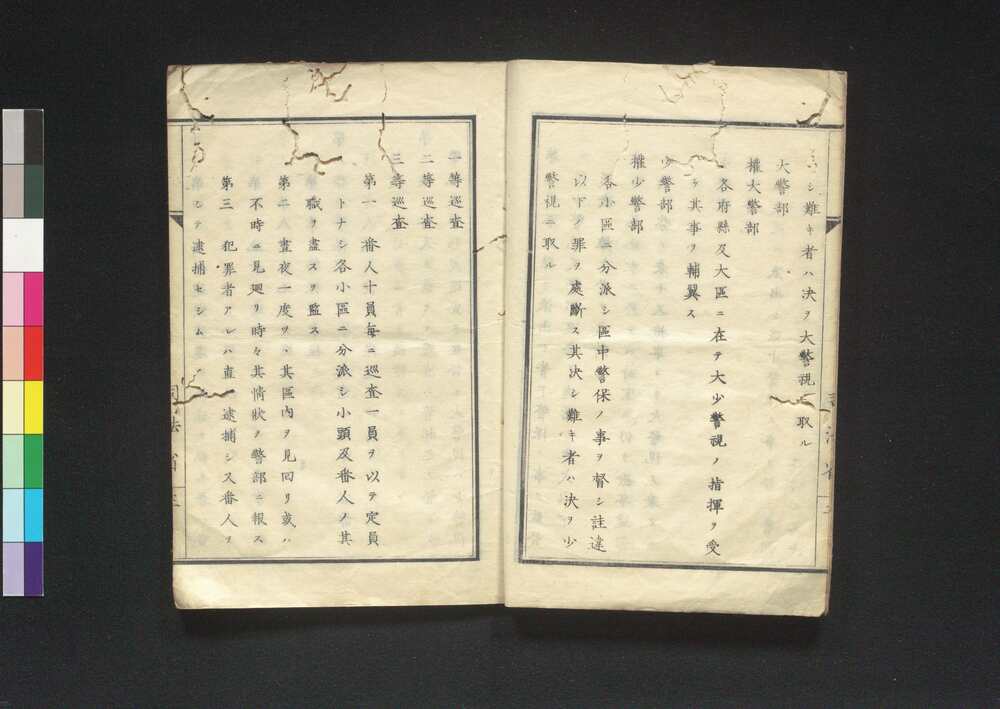 シ難キ者ハ決ヲ大警視ニ取ル
大警部
權大警部
各府縣及大區ニ在テ大少警視ノ指揮ヲ受
ケ其事ヲ輔翼ス
少警部
權少警部
各小區ニ分派シ區中警保ノ事ヲ督シ註違
以下ノ罪ヲ處斷ス其決シ難キ者ハ決ヲ少
警視ニ取ル
一等巡査
二等巡査
三等巡査
第一 番人十員每ニ巡査一員ヲ以テ定員
トナシ各小區ニ分派シ小頭及番人ノ其
職ヲ盡スヲ監ス
第二 晝夜一度ツヽ其區內ヲ見回リ或ハ
不時ニ見廻リ時々其情狀ヲ警部ニ報ス
第三 犯罪者アレハ直ニ逮捕シ又番人ヲ
シテ逮捕セシム
司法省